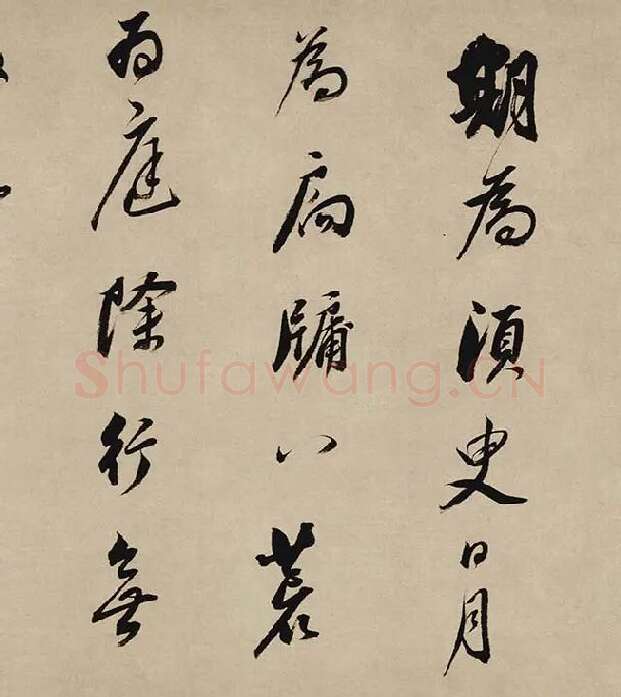 期為須臾日月
為扃牖八荒
為庭除行無
Shufawang.CN